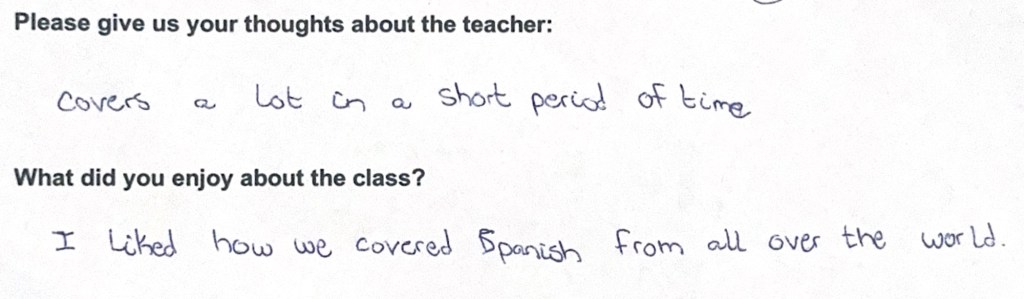 Please give us your thoughts about the teacher:
covers a lot in a short period of time
What did you enjoy about the class?
I liked how we covered Spanish from all over the world.